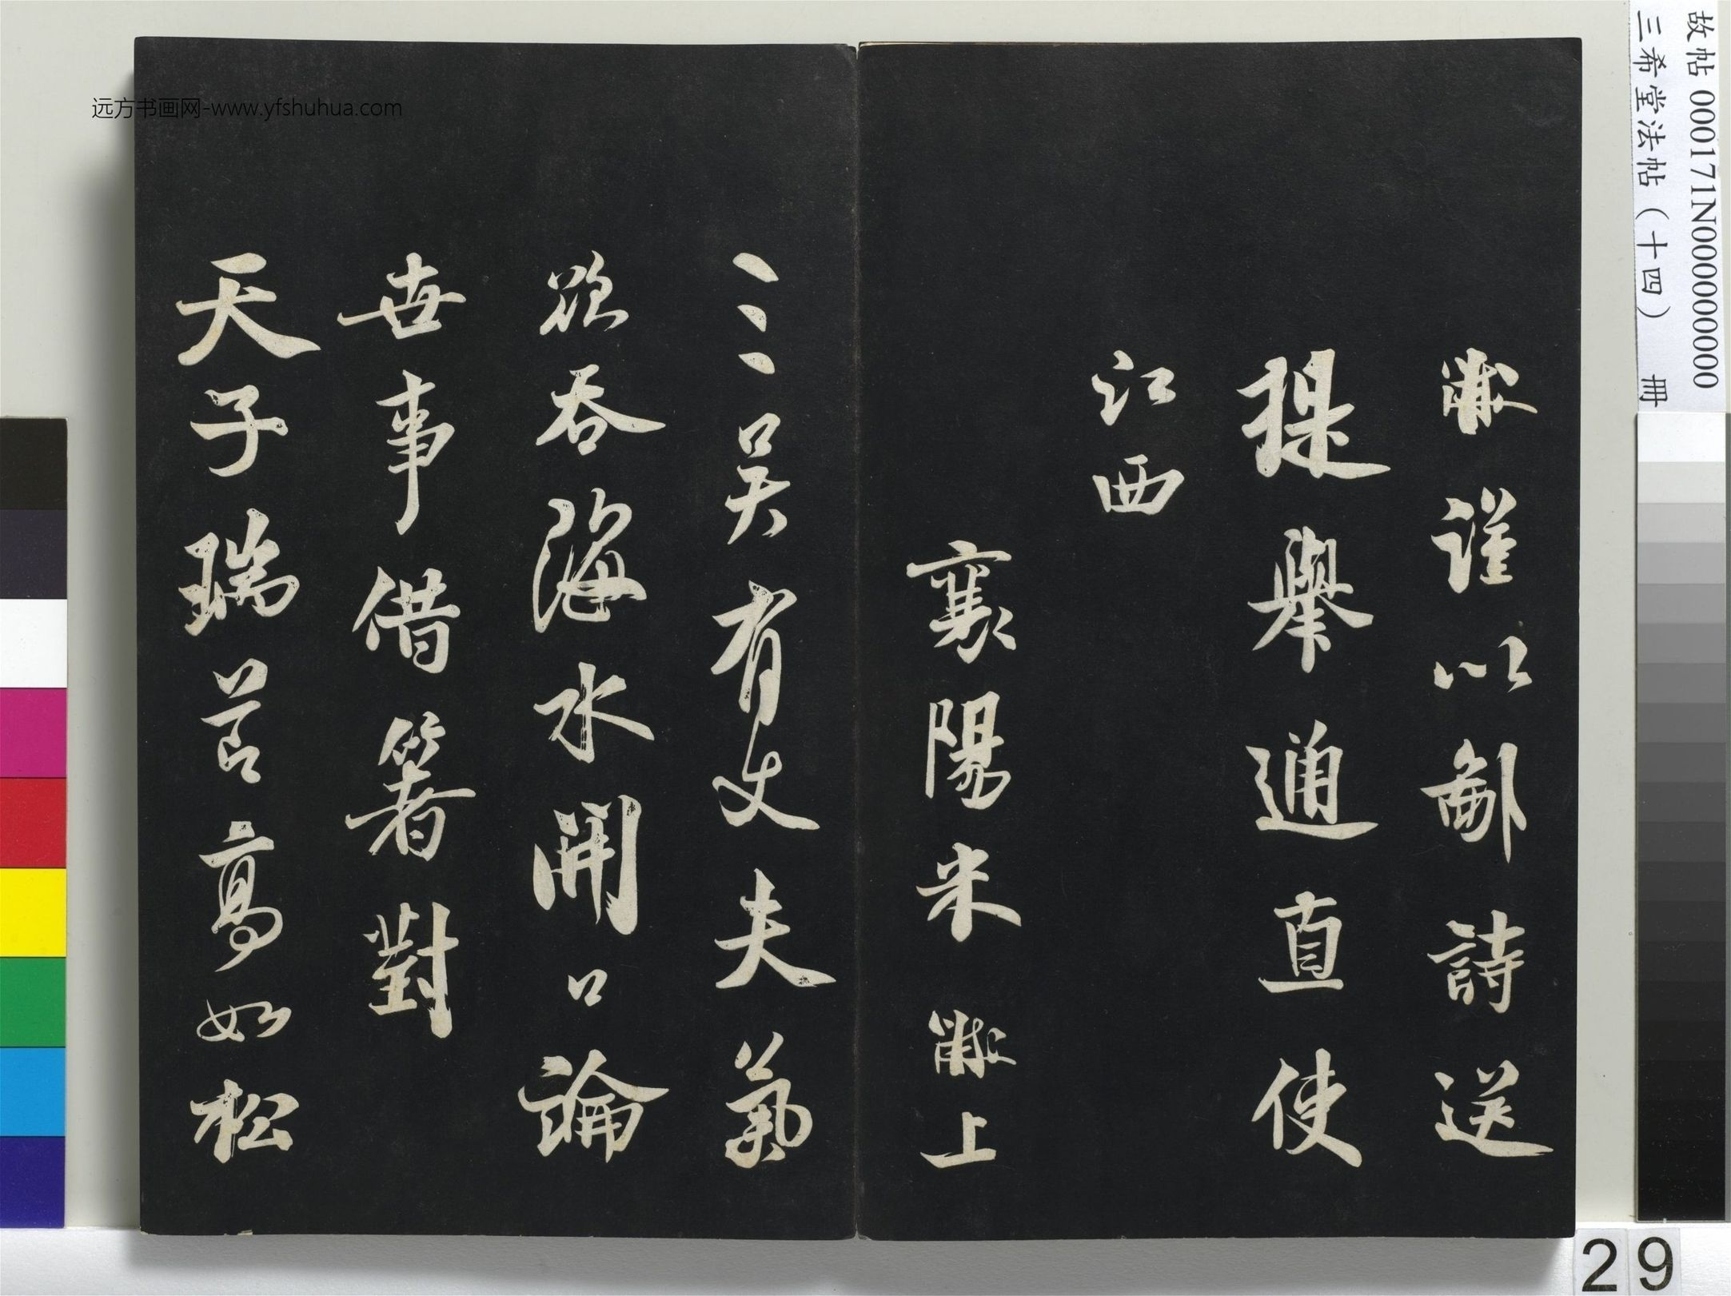 故帖 000171N000000000
三希堂法帖（十四） 冊
远方书画网-www.yfshuhua.com
黻謹以鄙詩送
提舉通直使
江西
襄陽米黻上
三吳有丈夫氣
欲吞海水開口論
世事借箸對
天子瑞節高如松
29